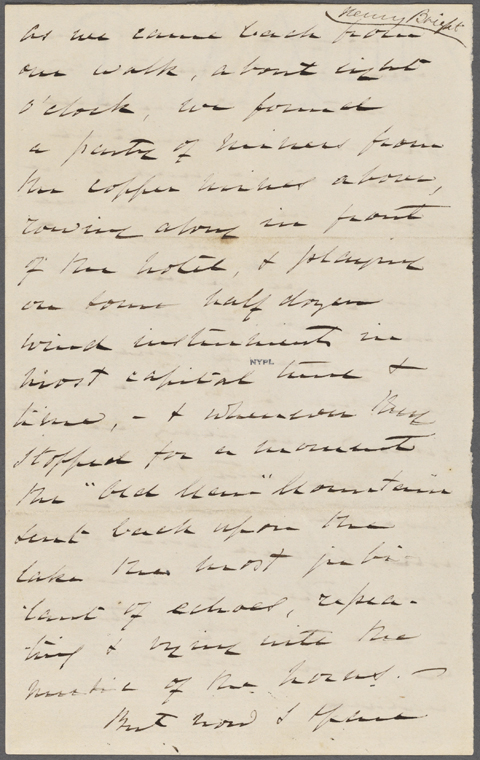 Henry Bright
as we came back from
our walk, about eight
o'clock, we found
a party of miners from
the copper mines above,
rowing along in front
of the hotel, & playing
on some half dozen
wind instruments in
most capital tune &
NYPL
time, – & whenever they
stopped for a moment
the "Old Man" Mountain
sent back upon the
lake the most jubi-
lant of echoes, repea-
ting & vying with the
music of the horns. —
But now I